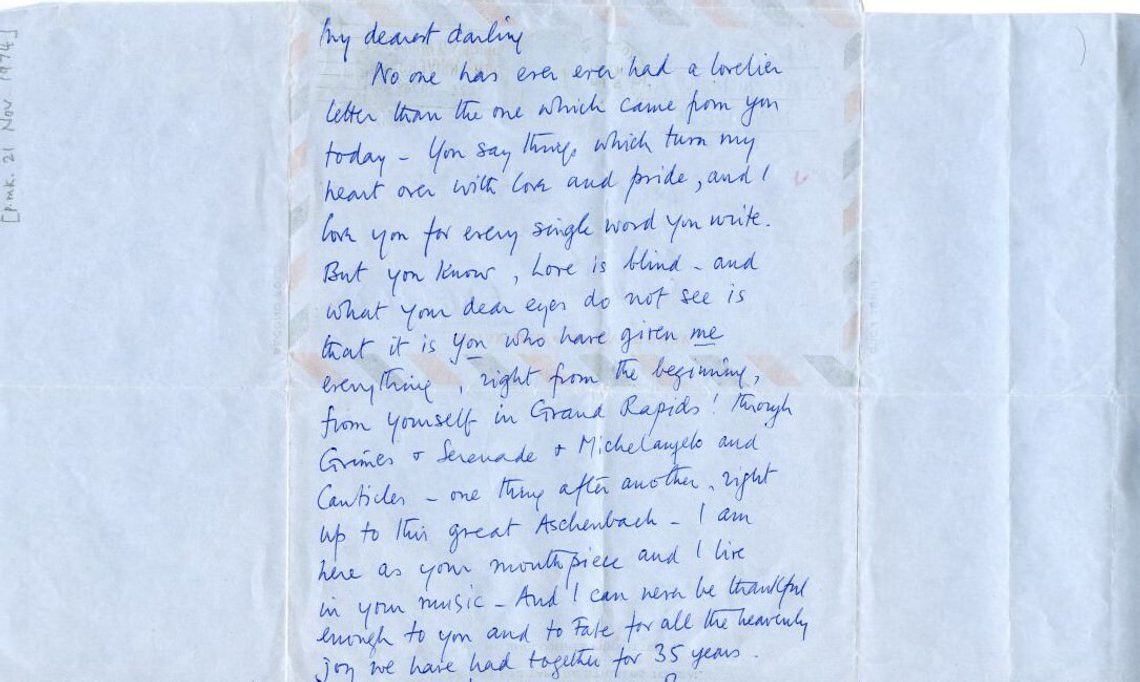 [p.mk. 21 Nov 1974]
My dearest darling
No one has ever ever had a lovelier
letter than the one which came from you
today – You say things which turn my
heart over with love and pride, and I
love you for every single word you write.
But you know, Love is blind – and
what your dear eyes do not see is
that it is you who have given me
everything, right from the beginning,
from yourself in Grand Rapids! through
Grimes & Serenade & Michelangelo and
Canticles – one thing after another, right
up to this great Aschenbach – I am
here as your mouthpiece and I live
in your music – And I can never be thankful
enough to you and to Fate for all the heavenly
joy we have had together for 35 years.